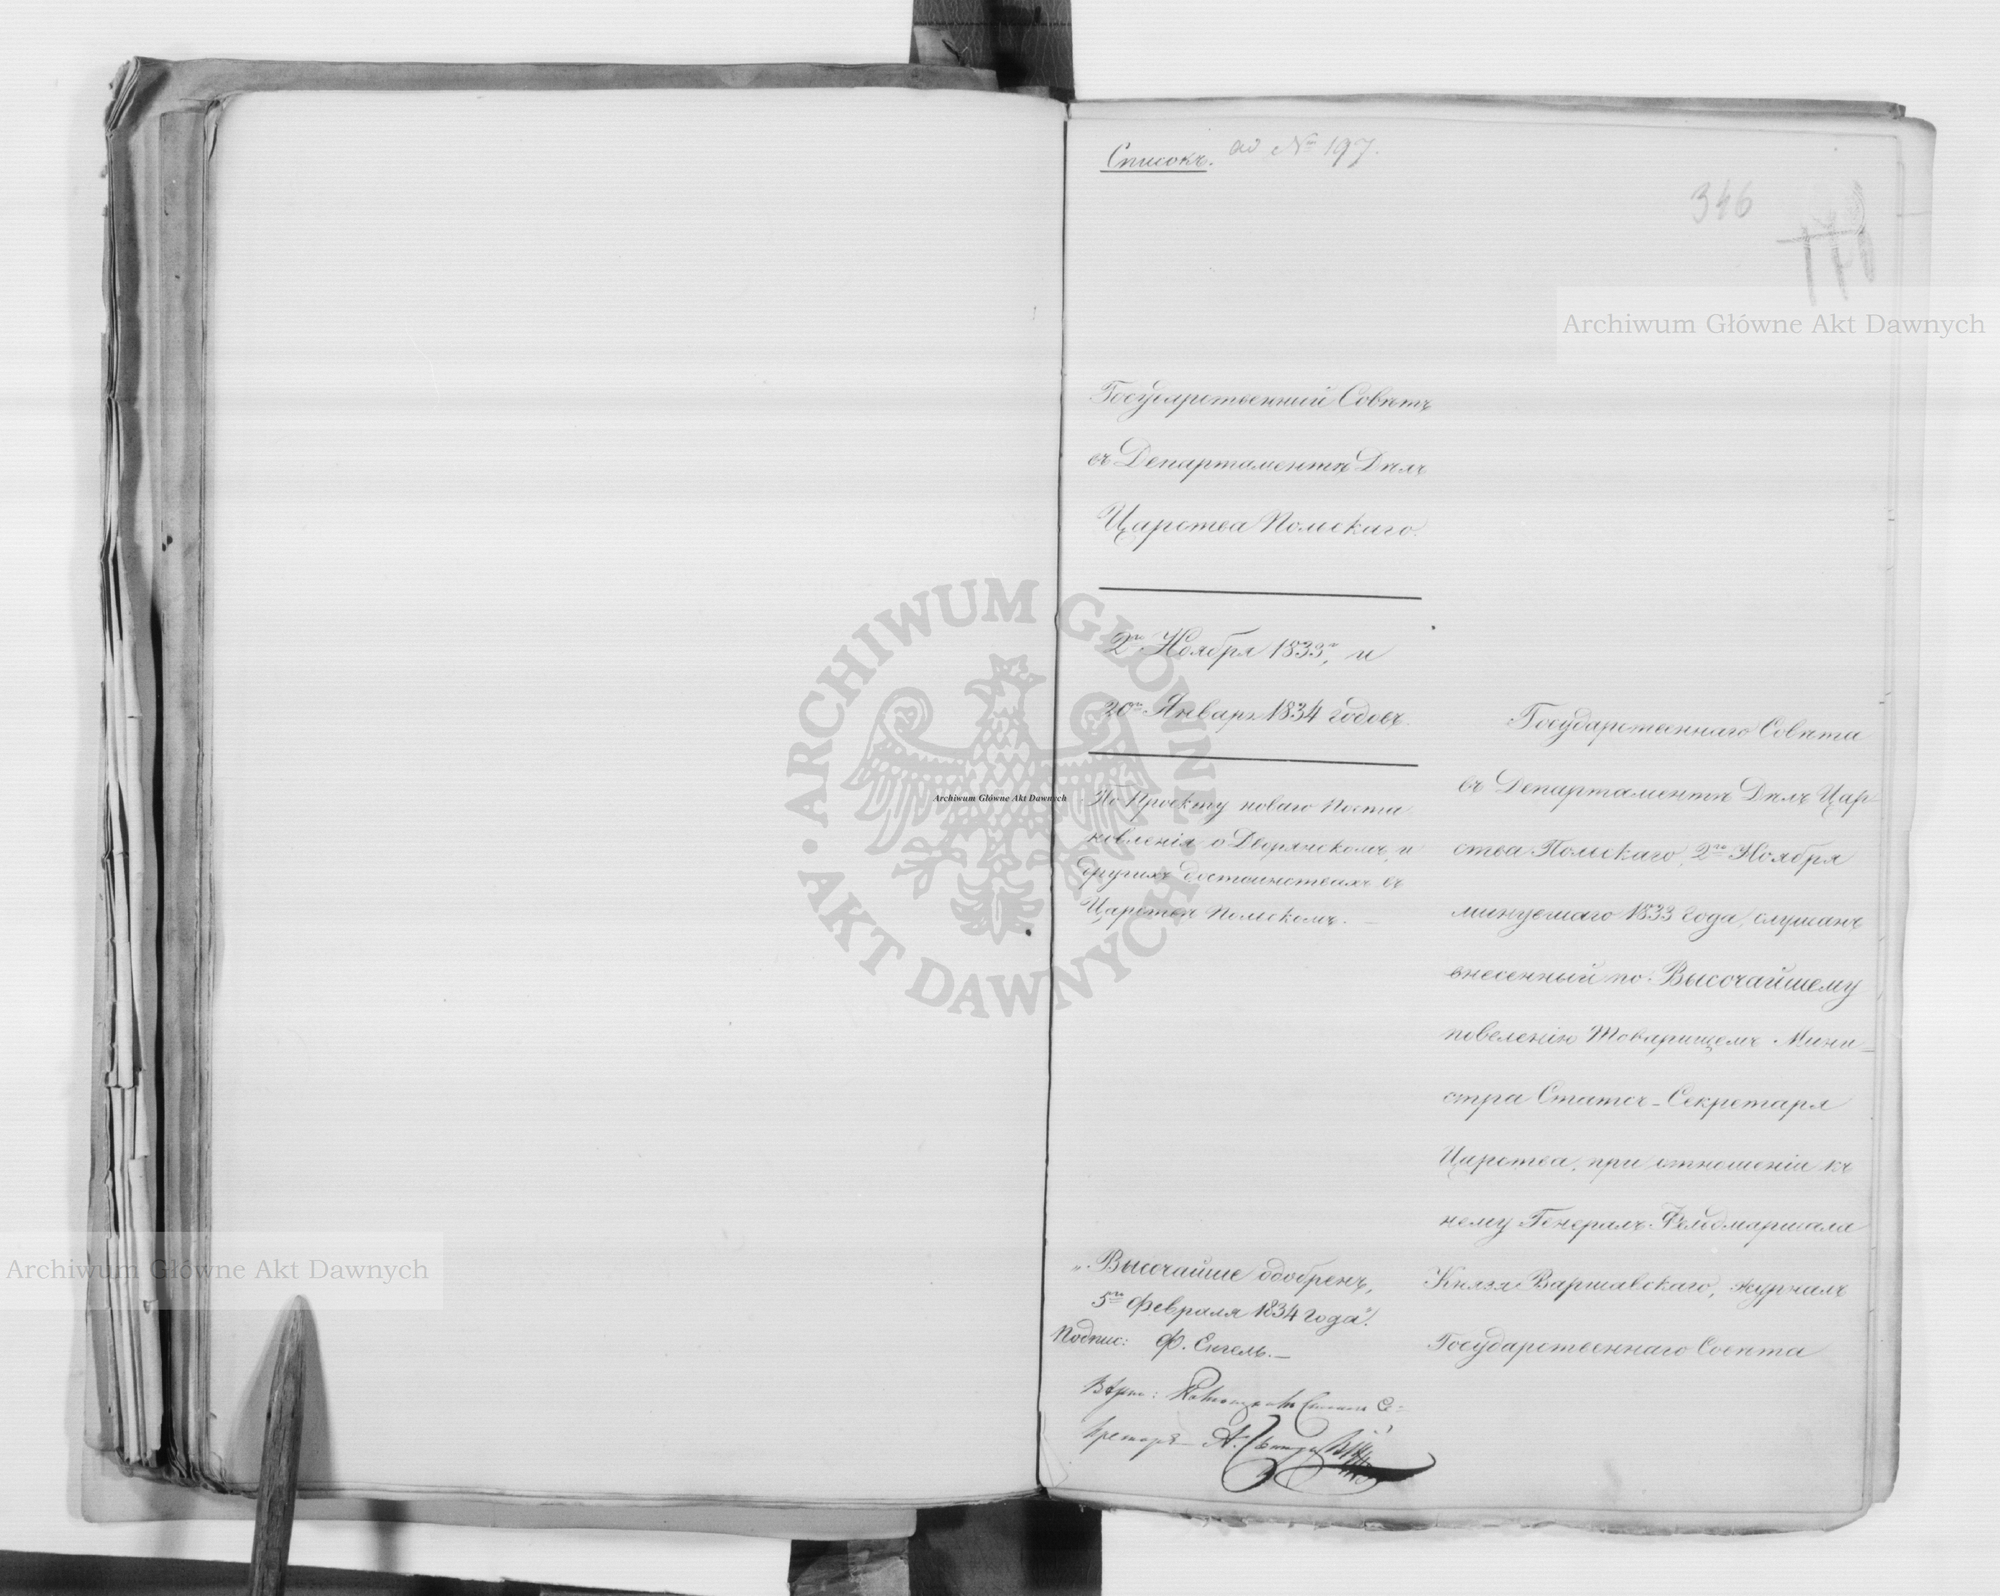 Списокъ. ad № 197.
346
Государственный Совѣтъ
въ Департаментѣ Дѣлъ
Царства Польскаго.
2го Ноября 1833го, и
20го Января 1834 годовъ.
По Проекту новаго Поста
новленія о Дворянскомъ и
другихъ достоинствахъ въ
Царствѣ Польскомъ.
„Высочайше одобренъ,
5го Февраля 1834 года".
Подпис: Ф. Енгель.
Вѣрно: Статсъ Се=
кретарь А.
Государственнаго Совѣта
въ Департаментѣ Дѣлъ Цар-
ства Польскаго, 2го Ноября
минувшаго 1833 года, слушанъ
внесенный по Высочайшему
повелѣнію Товарищемъ Мини-
стра Статсъ-Секретаря
Царства, при отношеніи къ
нему Генералъ-Фельдмаршала
Князя Варшавскаго, журналъ
Государственнаго Совѣта
Archiwum Główne Akt Dawnych
ARCHIWUM GŁÓWNE AKT DAWNYCH
Archiwum Główne Akt Dawnych
Archiwum Główne Akt Dawnych